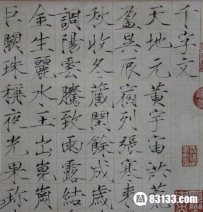 千字文
天地元黃宇宙洪荒
盈昃辰宿列張寒來
秋收冬藏閏餘成歲
調陽雲騰致雨露結
金生麗水玉出崑崗
巨闕珠稱夜光果珍
83133.com